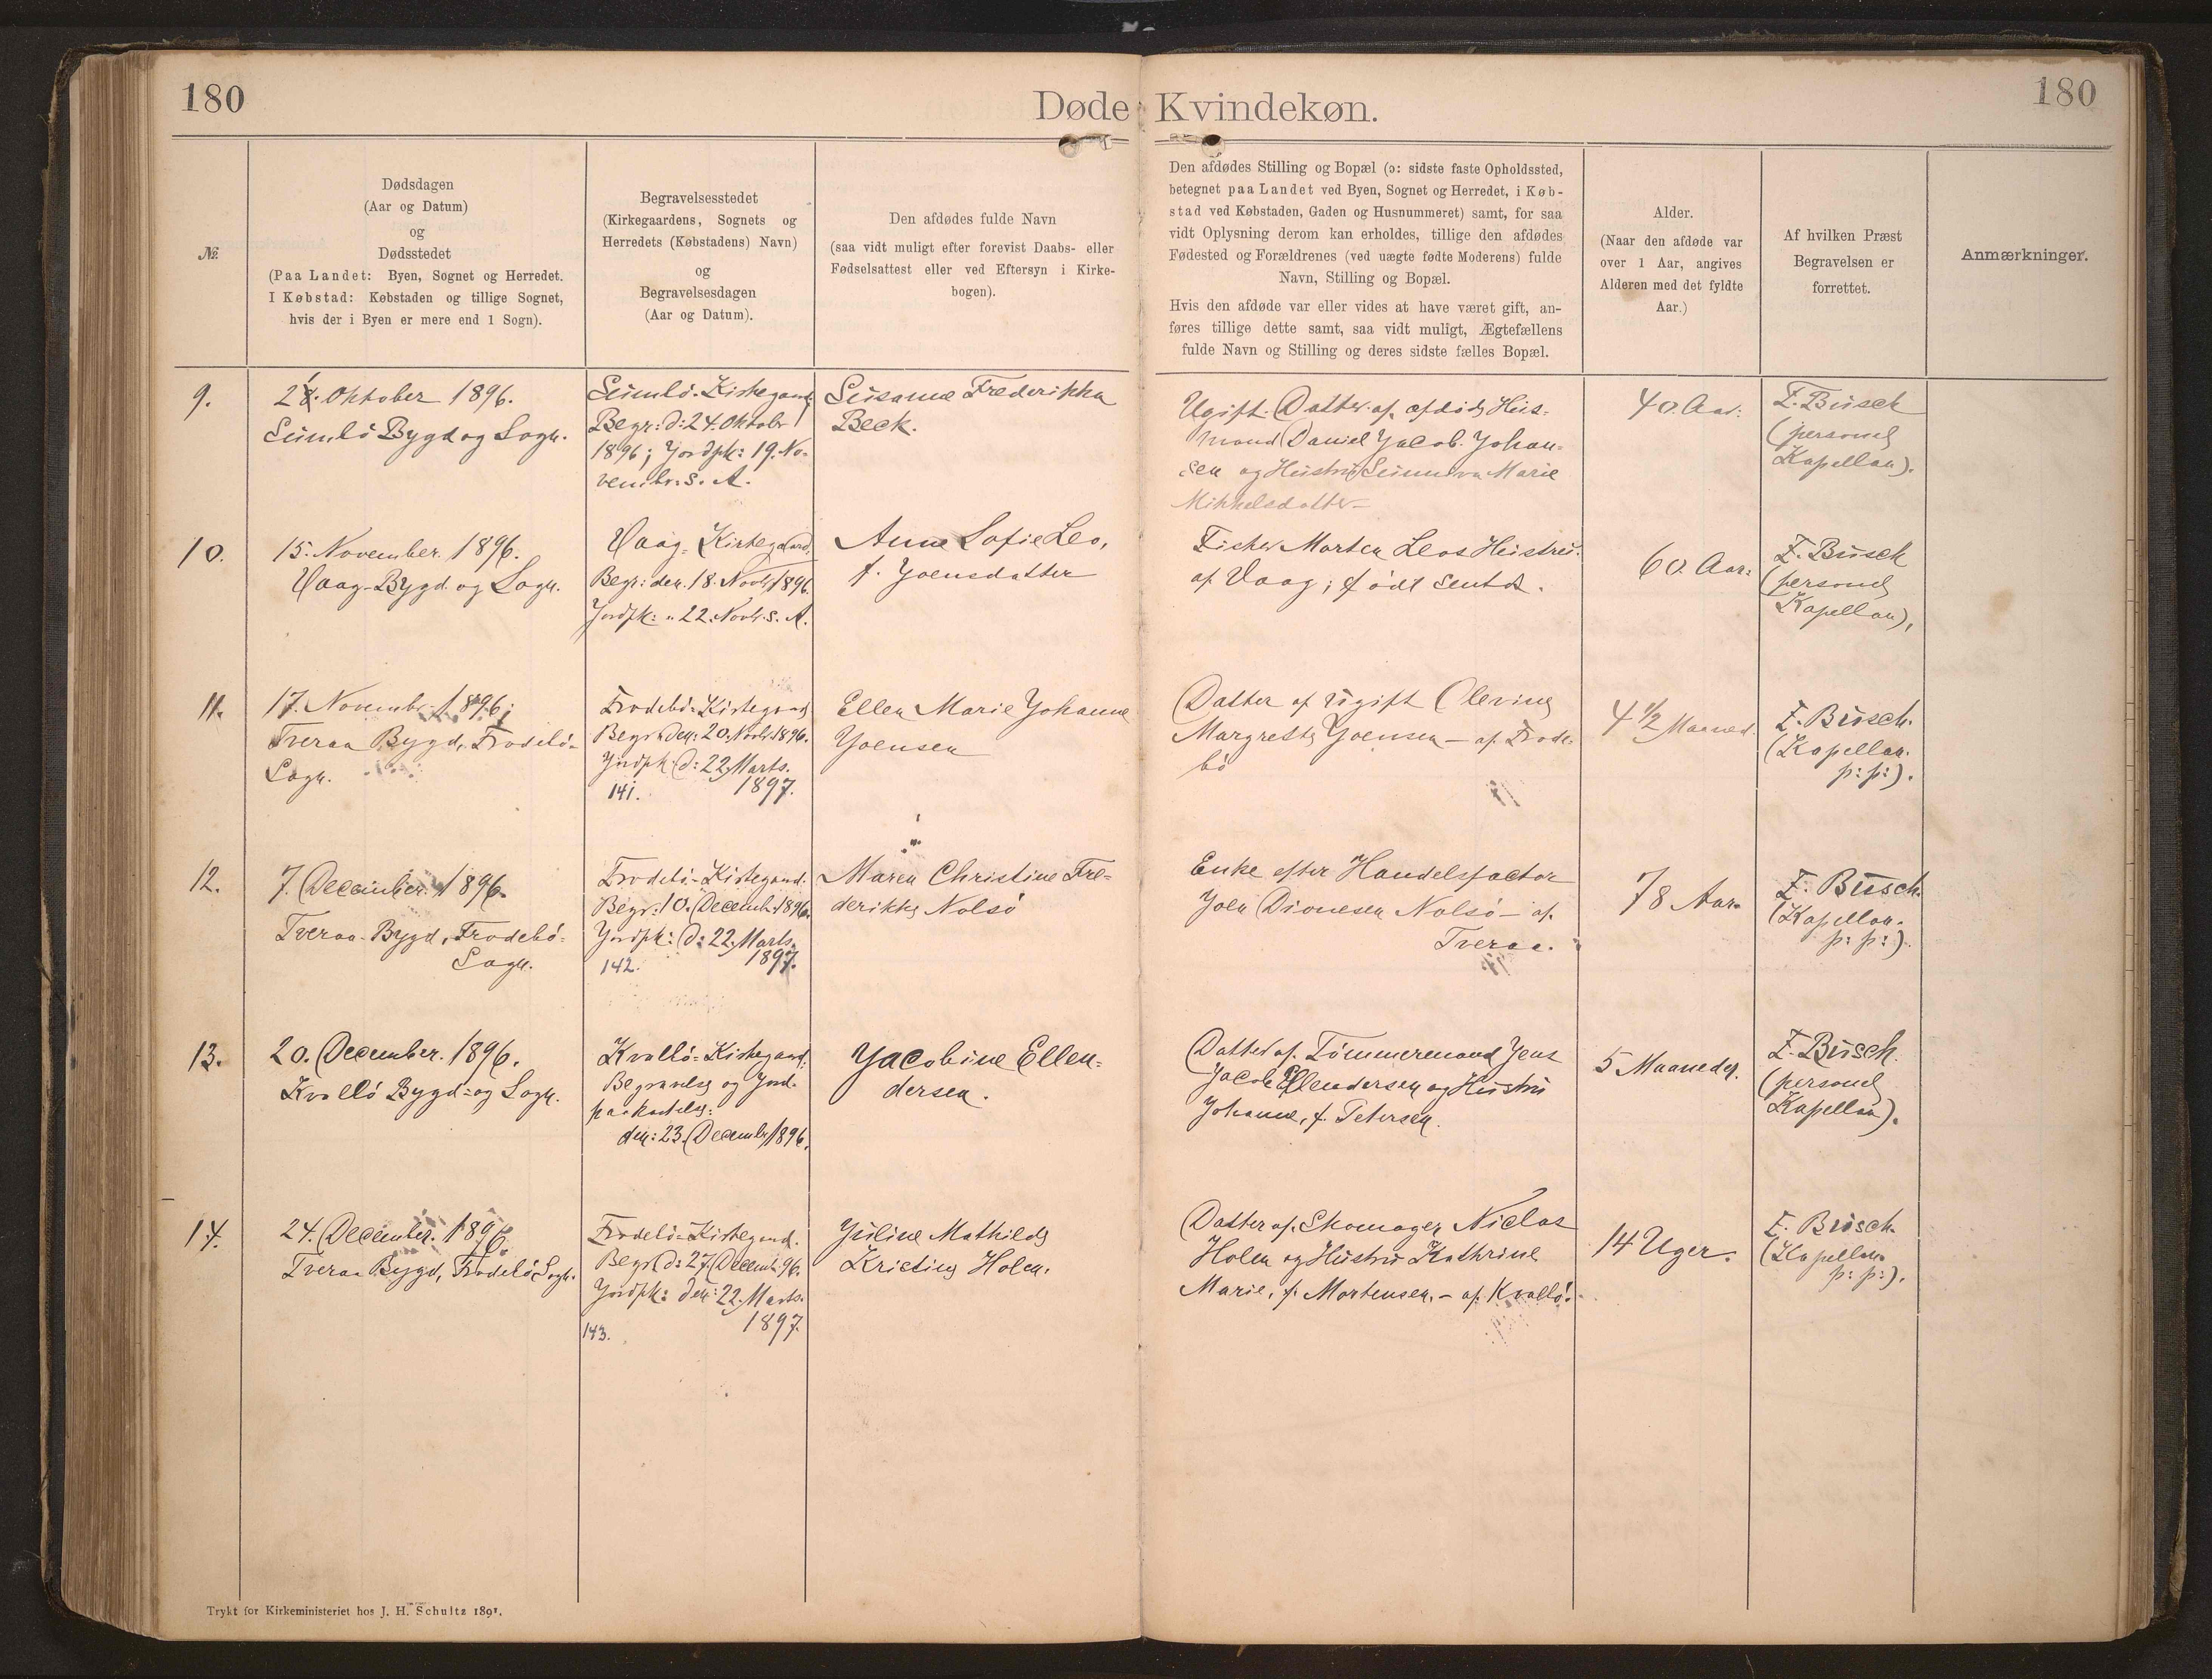 180
Døde Kvindekøn.
180
№.
Dødsdagen
(Aar og Datum)
og
Dødsstedet
(Paa Landet: Byen, Sognet og Herredet.
I Købstad: Købstaden og tillige Sognet,
hvis der i Byen er mere end 1 Sogn).
Begravelsesstedet
(Kirkegaardens, Sognets og
Herredets (Købstadens) Navn)
og
Begravelsesdagen
(Aar og Datum).
Den afdødes fulde Navn
(saa vidt muligt efter forevist Daabs- eller
Fødselsattest eller ved Eftersyn i Kirke-
bogen).
Den afdødes Stilling og Bopæl (ɔ: sidste faste Opholdssted,
betegnet paa Landet ved Byen, Sognet og Herredet, i Køb-
stad ved Købstaden, Gaden og Husnummeret) samt, for saa
vidt Oplysning derom kan erholdes, tillige den afdødes
Fødested og Forældrenes (ved uægte fødte Moderens) fulde
Navn, Stilling og Bopæl.
Hvis den afdøde var eller vides at have været gift, an-
føres tillige dette samt, saa vidt muligt, Ægtefællens
fulde Navn og Stilling og deres sidste fælles Bopæl.
Alder.
(Naar den afdøde var
over 1 Aar, angives
Alderen med det fyldte
Aar.)
Af hvilken Præst
Begravelsen er
forrettet.
Anmærkninger.
9.
Oktober 1896.
Sumbö Bygd og Sogn.
Sumbö-Kirkegaard,
Begr: d: 24. Oktobr
1896; Jordpk: 19. No-
vembr. s. A.
Susanne Frederikka
Beck.
Ugift. Datter af afdøde Hus-
mand Daniel Jacob Johan-
sen og Hustru Sunneva Marie
Mikkelsdatter
40 Aar.
F. Busch
(personel
Kapellan).
10.
15. November. 1896.
Vaag-Bygd og Sogn.
Vaag-Kirkegaard,
Begr: den 18. Novbr 1896.
Jordpk: " 22. Novbr. s. A.
Anne Sofie Leo,
f. Joensdatter
Fisker Morten Leos Hustru
af Vaag; født
60. Aar:
F. Busch
(personel
Kapellan),
11.
17. Novembr 1896;
Tveraa Bygd, Frodebö-
Sogn.
Frodebö-Kirkegaard
Begr: den: 20. Novbr 1896.
Jordpk: d: 22 Marts.
141. 1897.
Ellen Marie Johanne
Joensen
Datter af ugift Olevine
Margrethe Joensen - af Frode-
bö
4 1/2 Maaned.
F. Busch.
(Kapellan.
p: p:).
12.
7. December 1896.
Tveraa-Bygd, Frodebö-
Sogn.
Frodebö-Kirkegaard.
Begr: 10. Decemb. 1896.
Jordpk: d: 22. Marts.
142. 1897.
Maren Christine Fre-
derikke Nolsö
Enke efter Handelsfactor
Joen Dionesen Nolsö - af.
Tveraa.
78 Aar.
F. Busch.
(Kapellan.
p: p:).
13.
20. December. 1896.
Kvalbö Bygd- og Sogn.
Kvalbö-Kirkegaard:
Begravelse og Jord-
paakastelse:
den: 23. Decembr 1896.
Jacobine Ellen-
dersen.
Datter af. Tömmermand Jens
Jacob Ellendersen og Hustru
Johanne, f. Petersen.
5 Maaneder.
F. Busch.
(personel
Kapellan).
14.
24. December. 1896.
Tveraa Bygd, Frodebö Sogn.
Frodebö-Kirkegaard.
Begr: d: 27. Decemb. 96.
Jordpk: den: 22. Marts.
143. 1897.
Juline Mathilde
Kristine Holm.
Datter af. Skomager Niclas
Holm og Hustru Kathrine
Marie, f. Mortensen, - af Kvalbö.
14 Uger.
F. Busch.
(Kapellan.
p: p:).
Trykt for Kirkeministeriet hos J. H. Schultz 1891.